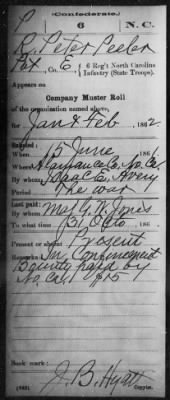 P
(Confederate.)
6
N.C.
R. Peter Peeler
Pvt, Co. E, 6 Reg't North Carolina
Infantry (State Troops).
Appears on
Company Muster Roll
of the organization named above,
for Jan & Feb, 1862.
Enlisted:
When 15 June, 1861.
Where Alamance Co, No. Ca.
By whom Isaac E. Avery
Period The war
Last paid:
By whom Maj G. W. Jones
To what time 31 Octo, 186
Present or absent Present
Remarks: In Confinement
Bounty paid by
No. Ca. $15
Book mark:
(642)
J. B. Hyatt
Copyist.